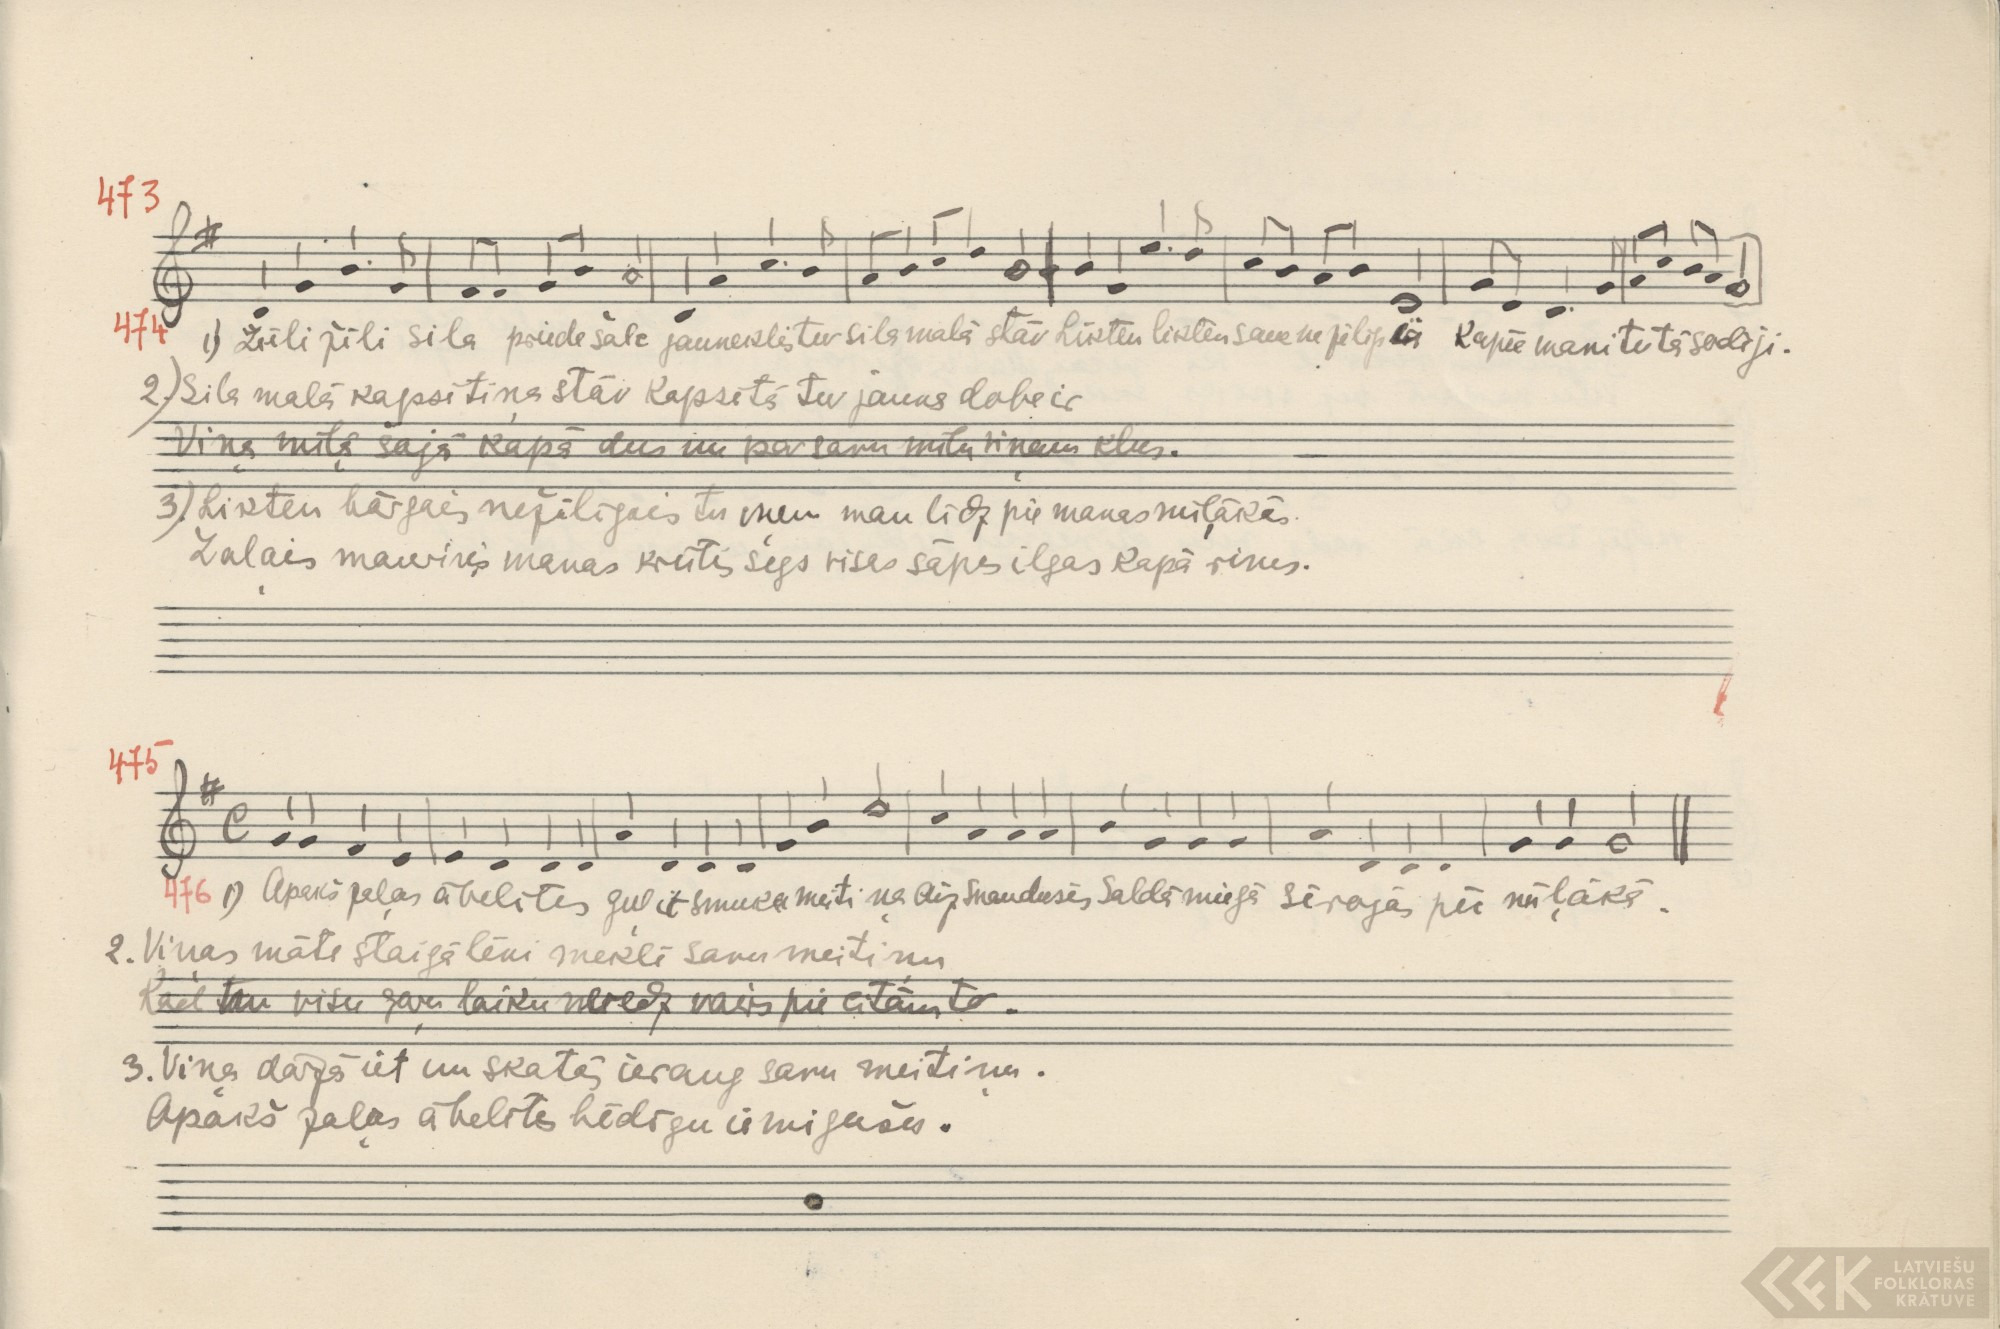 473
474
1) Žēli žēli sila priede šalc jauneklis tur sila malā stāv Liktēn liktēn nežēlīgais Kāpēc mani tu tā sodīji.
2.) Sila malā kapsētiņa stāv Kapsētā tur jauna dobe ir
Viņa mīļā šajā kapā dus un par savu mīlu viņam klus.
3) Liktēn bārgais nežēlīgais tu ņem man līdz pie manas mīļākās.
Zaļais mauriņš manas krūtis segs visas sāpes ilgas kapā rims.
475
476 1) Apakš zaļas ābelītes guļ it smuka meitiņa Aizsnaudusēs saldā miegā sērojās pēc mīļākā.
2. Viņas māte staigā lēni meklē savu meitiņu
Kad tau visu garu laiku neredz vairs pie citām to.
3. Viņa dārzā iet un skatās ieraug savu meitiņu.
Apakš zaļas ābelītes bēdīgu iemigušu.
LATVIEŠU
FOLKLORAS
KRĀTUVE